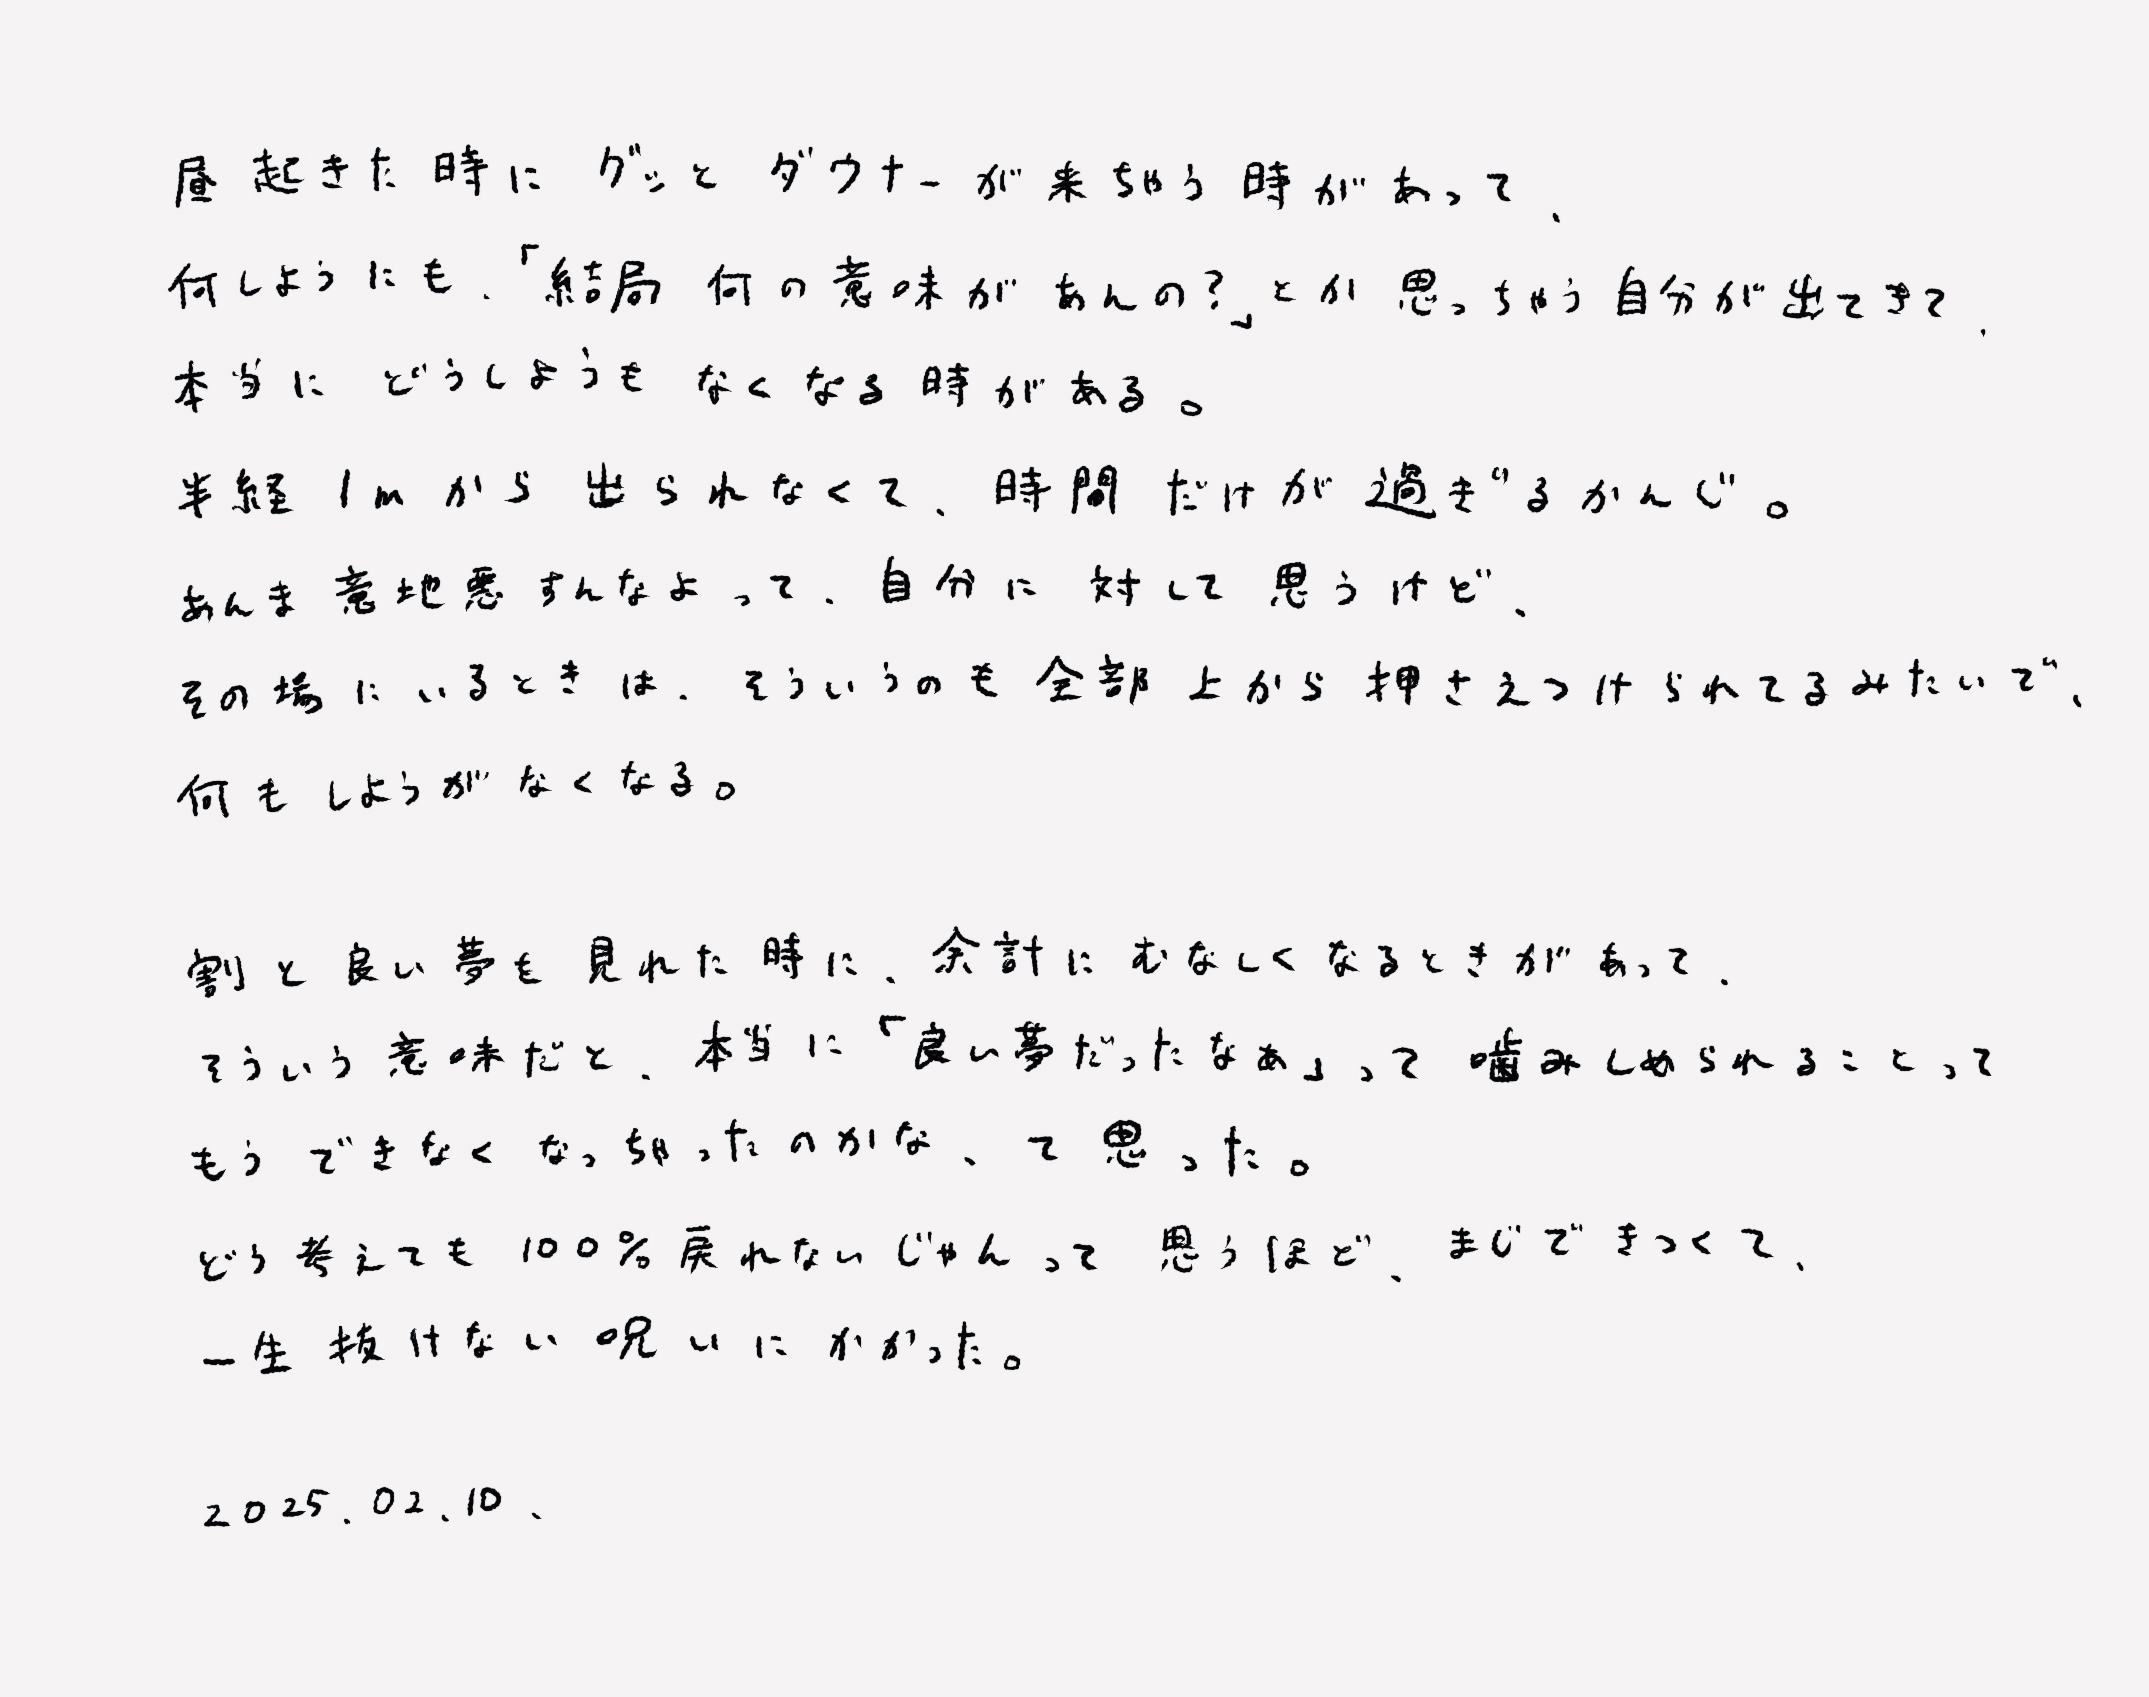 昼起きた時にグッとダウナーが来ちゃう時があって、
何しようにも、「結局何の意味があんの?」とか思っちゃう自分が出てきて、
本当にどうしようもなくなる時がある。
半経1mから出られなくて、時間だけが過ぎるかんじ。
あんま意地悪すんなよって、自分に対して思うけど、
その場にいるときは、そういうのも全部上から押さえつけられてるみたいで、
何もしようがなくなる。
割と良い夢も見れた時に、余計にむなしくなるときがあって、
そういう意味だと、本当に「良い夢だったなぁ」って噛みしめられることって
もうできなくなっちゃったのかな、て思った。
どう考えても100%戻れないじゃんって思うほど、まじできつくて、
一生抜けない呪いにかかった。
2025.02.10、